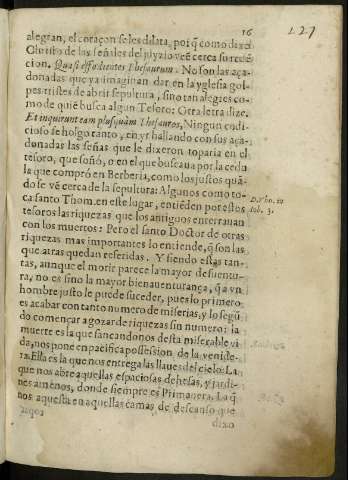 16
127
alegran, el coraçon se les dilata, porq̃ como dixo
Christo de las señales del juyzio veẽ cerca su redẽ
cion. Quasi effodientes Thesaurum. No son las aça-
donadas que ya imaginan dar en la yglesia gol-
pes tristes de abrir sepultura, sino tan alegres co-
mo de quiẽ busca algun Tesoro: Otra letra dize.
Et inquirunt eam plusquàm Thesauros, Ningun codi-
cioso se holgo tanto, en yr hallando con sus aça-
donadas las señas que le dixeron toparia en el
tesoro, que soñó, o en el que buscaua por la cedu
la que comprò en Berberia, como los justos quã-
do se vẽ cerca de la sepultura: Algunos como to-
D. Tho. in
ca santo Thom. en este lugar, entiẽden por estos
Iob. 3.
tesoros las riquezas que los antiguos enterrauan
con los muertos: Pero el santo Doctor de otras
riquezas mas importantes lo entiende, q̃ son las
que atras quedan referidas. Y siendo estas tan-
tas, aunque el morir parece la mayor desuentu-
ra, no es sino la mayor bienauenturança, q̃ a vn
hombre justo le puede suceder, pues lo primero
es acabar con tanto numero de miserias, y lo segũ
do començar a gozar de riquezas sin numero: la
muerte es la que sancandonos desta miserable vi
da, nos pone en pacifica possession de la venide-
ra. Ella es la que nos entrega las llaues del cielo: La
que nos abre aquellas espaciosas dehesas, y jardi-
nes amenos, donde siempre es Primauera. La q̃
nos aquesta en aquellas camas de descanso que
dixo